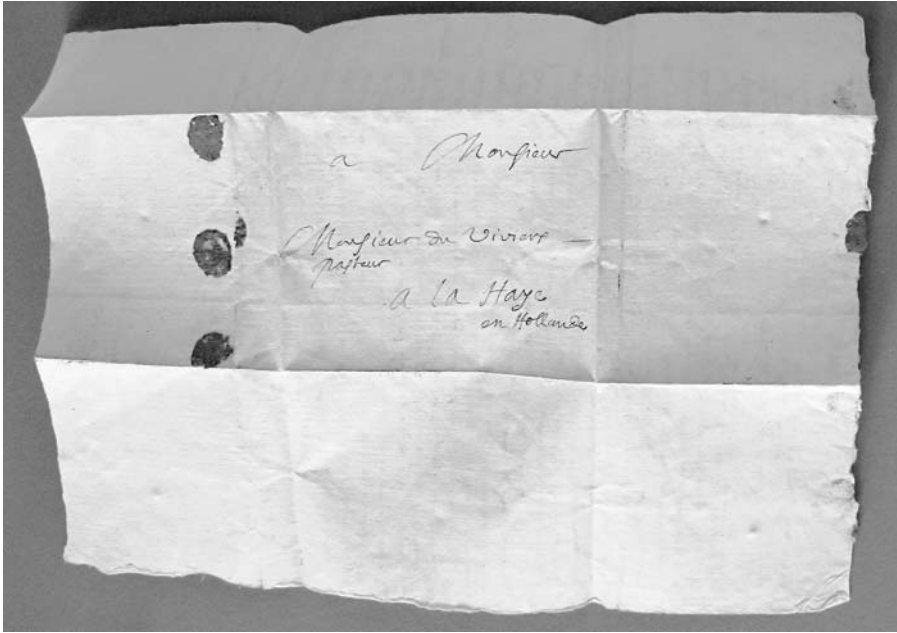 a Monsieur
Monsieur du Vivier
pasteur
a la Haye
en Hollande